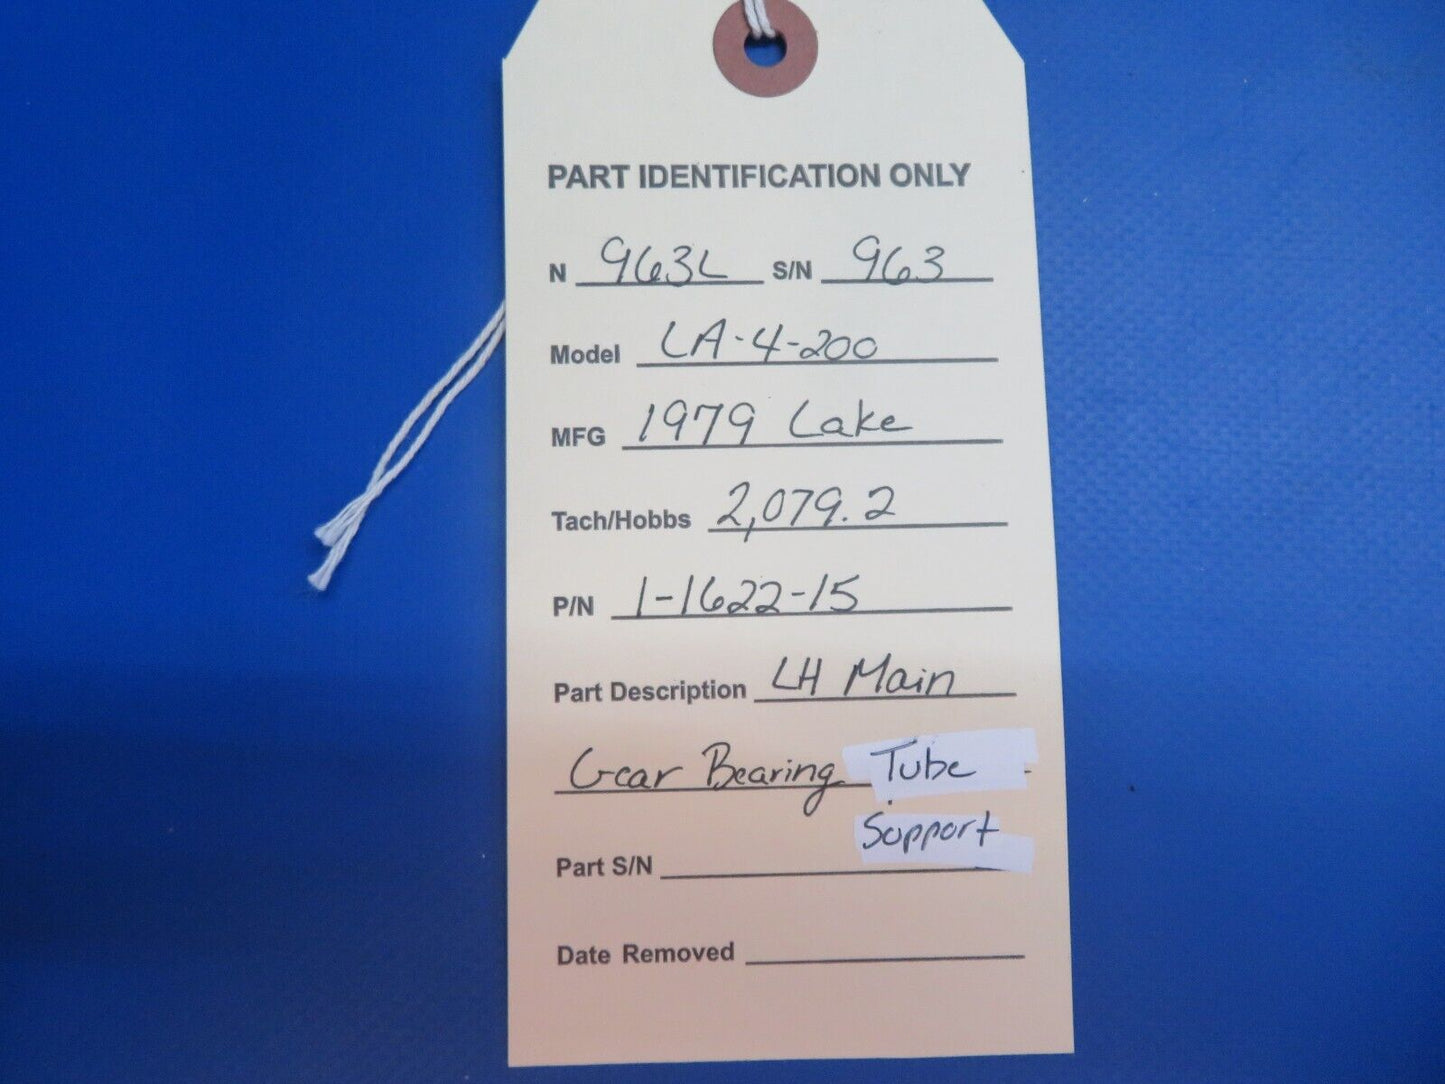 PART IDENTIFICATION ONLY
N 963L S/N 963
Model LA-4-200
MFG 1979 Lake
Tach/Hobbs 2,079.2
P/N 1-1622-15
Part Description LH Main
Gear Bearing Tube
Support
Part S/N
Date Removed